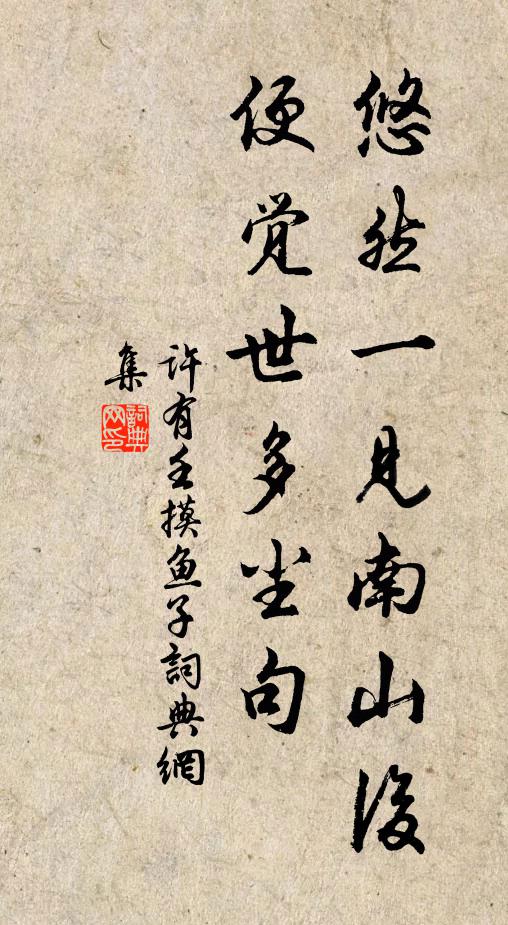 悠然一见南山後
便觉世多尘句
许有壬摸鱼子詞典網
集
詞典网印